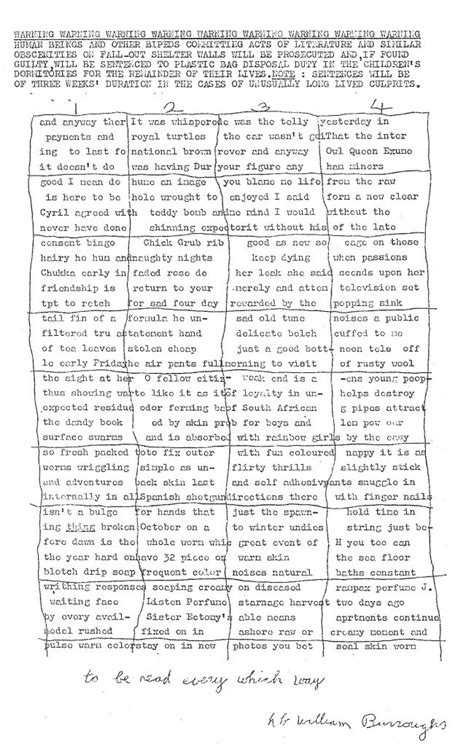 WARNING WARNING WARNING WARNING WARNING WARNING WARNING WARNING WARNING
HUMAN BEINGS AND OTHER BIPEDS COMMITTING ACTS OF LITERATURE AND SIMILAR
OBSCENITIES ON FALL-OUT SHELTER WALLS WILL BE PROSECUTED AND, IF FOUND
GUILTY, WILL BE SENTENCED TO PLASTIC BAG DISPOSAL DUTY IN THE CHILDREN'S
DORMITORIES FOR THE REMAINDER OF THEIR LIVES. NOTE : SENTENCES WILL BE
OF THREE WEEKS' DURATION IN THE CASES OF UNUSUALLY LONG LIVED CULPRITS.
1 2 3 4
and anyway ther It was whispered was the telly yesterday in
payments and royal turtles the car wasn't goi That the inter
ing to last fo national brown rever and anyway Owl Queen Exume
it doesn't do was having Dur your figure any ham miners
good I mean do hume an image you blame me life from the raw
is here to be hole wrought to enjoyed I said form a new clear
Cyril agreed with teddy bomb and me mind I would without the
never have done shinning expector it without his of the late
consent bingo Chick Grub rib good as new so cage on those
hairy he hum and naughty nights keep dying when passions
Chukka early in faded rose de her leak she said seconds upon her
friendship is return to your merely and atten television set
tpt to retch for sad four day rewarded by the popping sink
tail fin of a formula he un- sad old tune noises a public
filtered tru a statement hand delicate belch cuffed to me
of tea leaves stolen cheap just a good bott- noon tele off
le early Friday he air pants full morning to visit of rusty wool
the sight at her O fellow citiz- week end is a -ens young poop
thus showing war to like it as it of loyalty in un- helps destroy
expected residue odor forming be of South African g pipos attract
the dandy book ed by skin prob for boys and lem pow our
surface swarms and is absorbed with rainbow girls by the easy
so fresh packed to fix outer with fun coloured nappy it is as
worms wriggling simple as un- flirty thrills slightly stick
and adventures back skin last and self adhesive pants snuggle in
internally in all Spanish shotgun directions there with finger nails
isn't a bulge for hands that just the spawn- hold time in
ing thing broken October on a to winter undies string just be-
fore dawn is the whole worm whic great event of H you too can
the year hard on have 32 piece on warm skin the sea floor
blotch drip soap frequent color noises natural baths constant
writhing responses soaping creamy on diseased rampax perfume J.
waiting face Listen Perfume starnage harvest two days ago
by every avail- Sister Ectomy's able means aprtments continue
model rushed fixed on in ashore raw or creamy moment and
pulse warm color stay on in now photos you bet seal skin worn
to be read every which way
William Burroughs